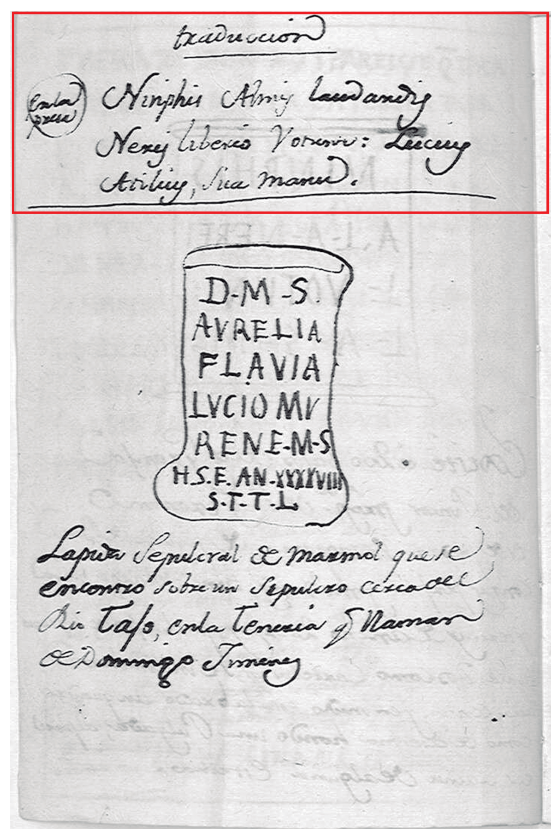 traducción
en la
Ninphis Almis laudandis
Nerei liberis Votum: Lucius
Atilius, sua manu.
D-M-S.
AVRELIA
FLAVIA
LVCIO MV
RENE-M-S
H.S.E. AN-XXXXVIII
S-T-T-L
Lapida Sepulcral de marmol que se
encontro sobre un sepulcro cerca del
Rio Tajo, en la Teneria q̃ llaman
de Domingo Jimenez